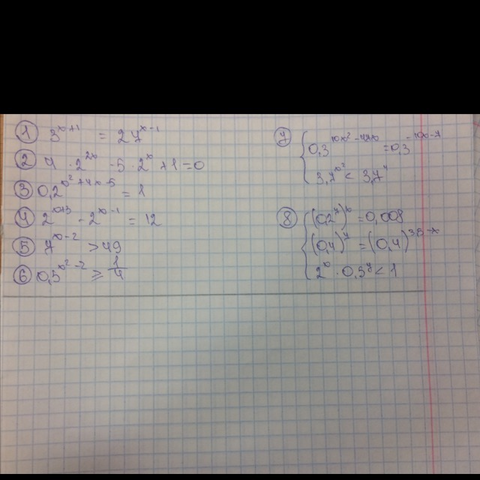 ① 3^{x+1} = 27^{x-1}
② 4 · 2^{2x} - 5 · 2^x + 1 = 0
③ 0,2^{x²+4x-5} = 1
④ 2^{x+3} - 2^{x-1} = 12
⑤ 7^{x-2} > 49
⑥ 0,5^{x²-2} ≥ 1/4
⑦
= 0,3
3,7^{x²} < 3,7^4
⑧ (0,2^y)^x = 0,008
(0,4)^y = (0,4)^{3,5-x}
2^x · 0,5^y < 1